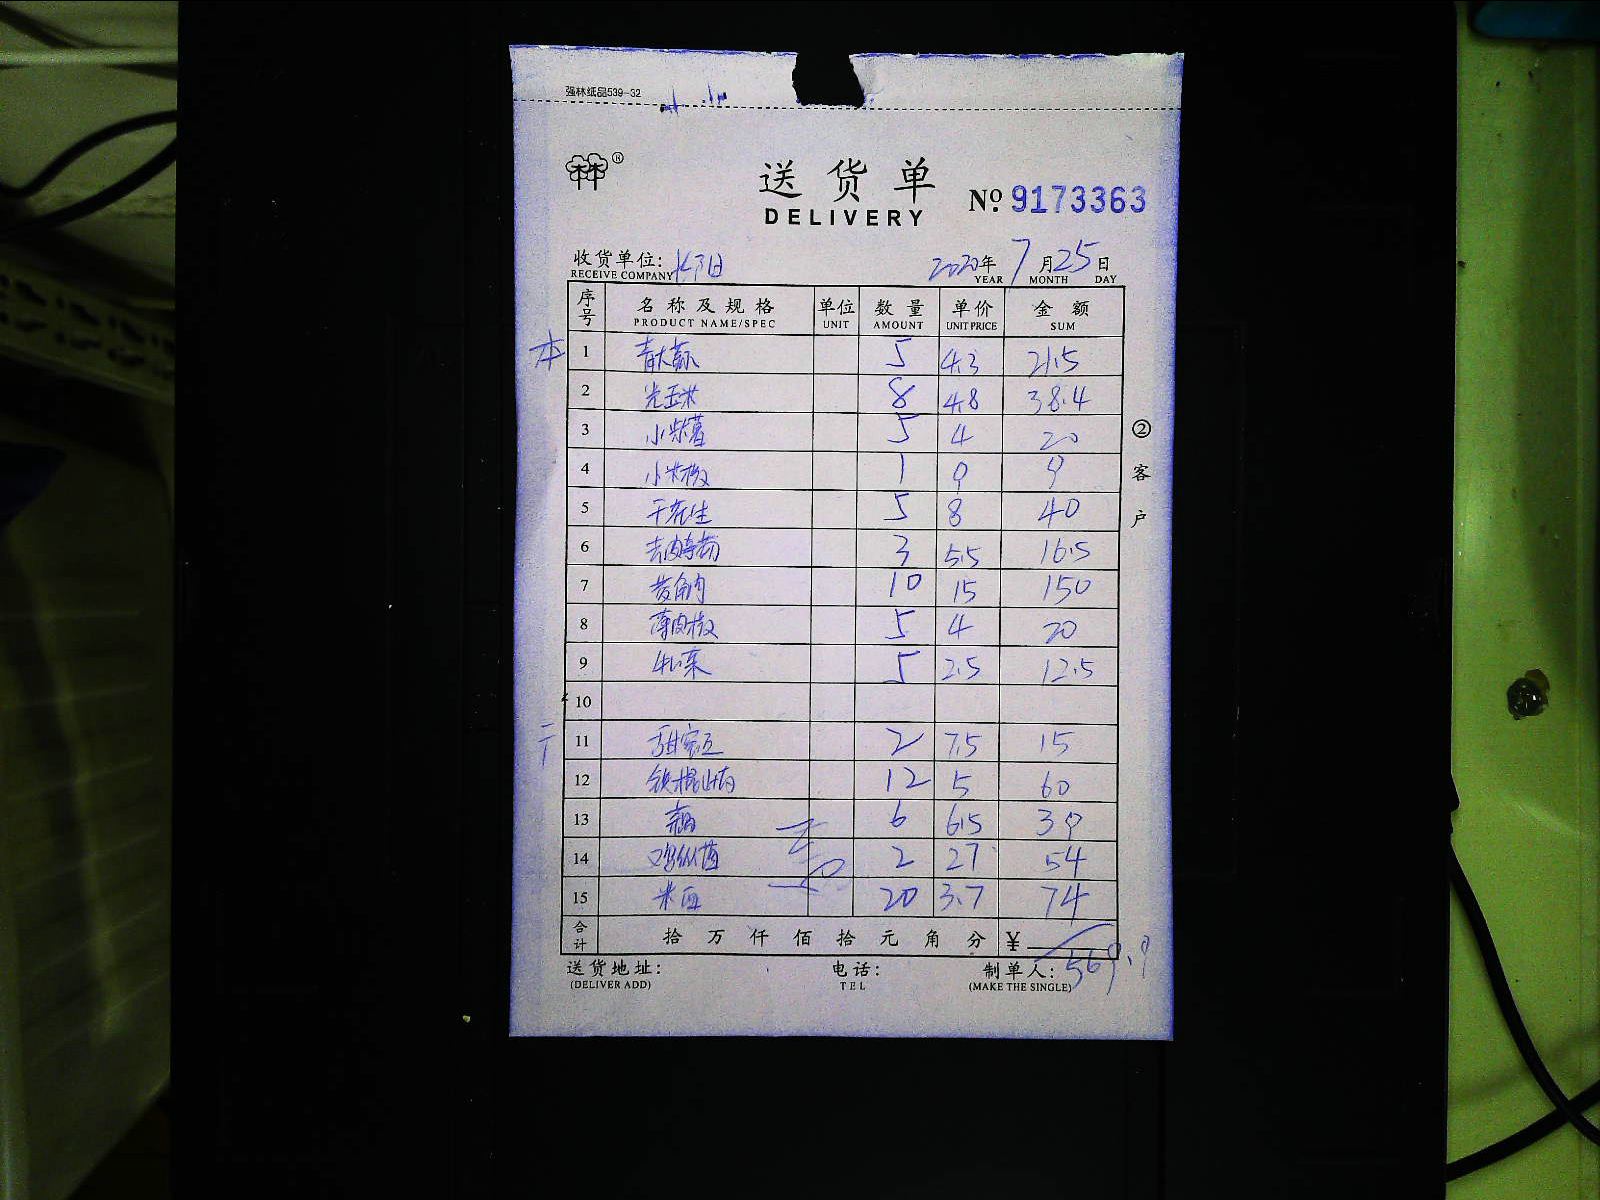 强林纸品539-32
林®
送货单
DELIVERY
Nº. 9173363
收货单位:
RECEIVE COMPANY
2020年 7月25日
YEAR MONTH DAY
序号 名称及规格 单位 数量 单价 金额
PRODUCT NAME/SPEC UNIT AMOUNT UNIT PRICE SUM
本 1 青大蒜 5 4.3 21.5
2 光玉米 8 4.8 38.4
3 小紫薯 5 4 20
4 小米椒 1 9 9
5 干花生 5 8 40
6 去皮 3 5.5 16.5
7 10 15 150
8 薄皮椒 5 4 20
9 5 2.5 12.5
10
11 2 7.5 15
12 铁棍山药 12 5 60
13 6 6.5 39
14 2 27 54
15 20 3.7 74
合计 拾 万 仟 佰 拾 元 角 分 ¥ 569.9
送货地址: 电话: 制单人:
(DELIVER ADD) TEL (MAKE THE SINGLE)
②客户